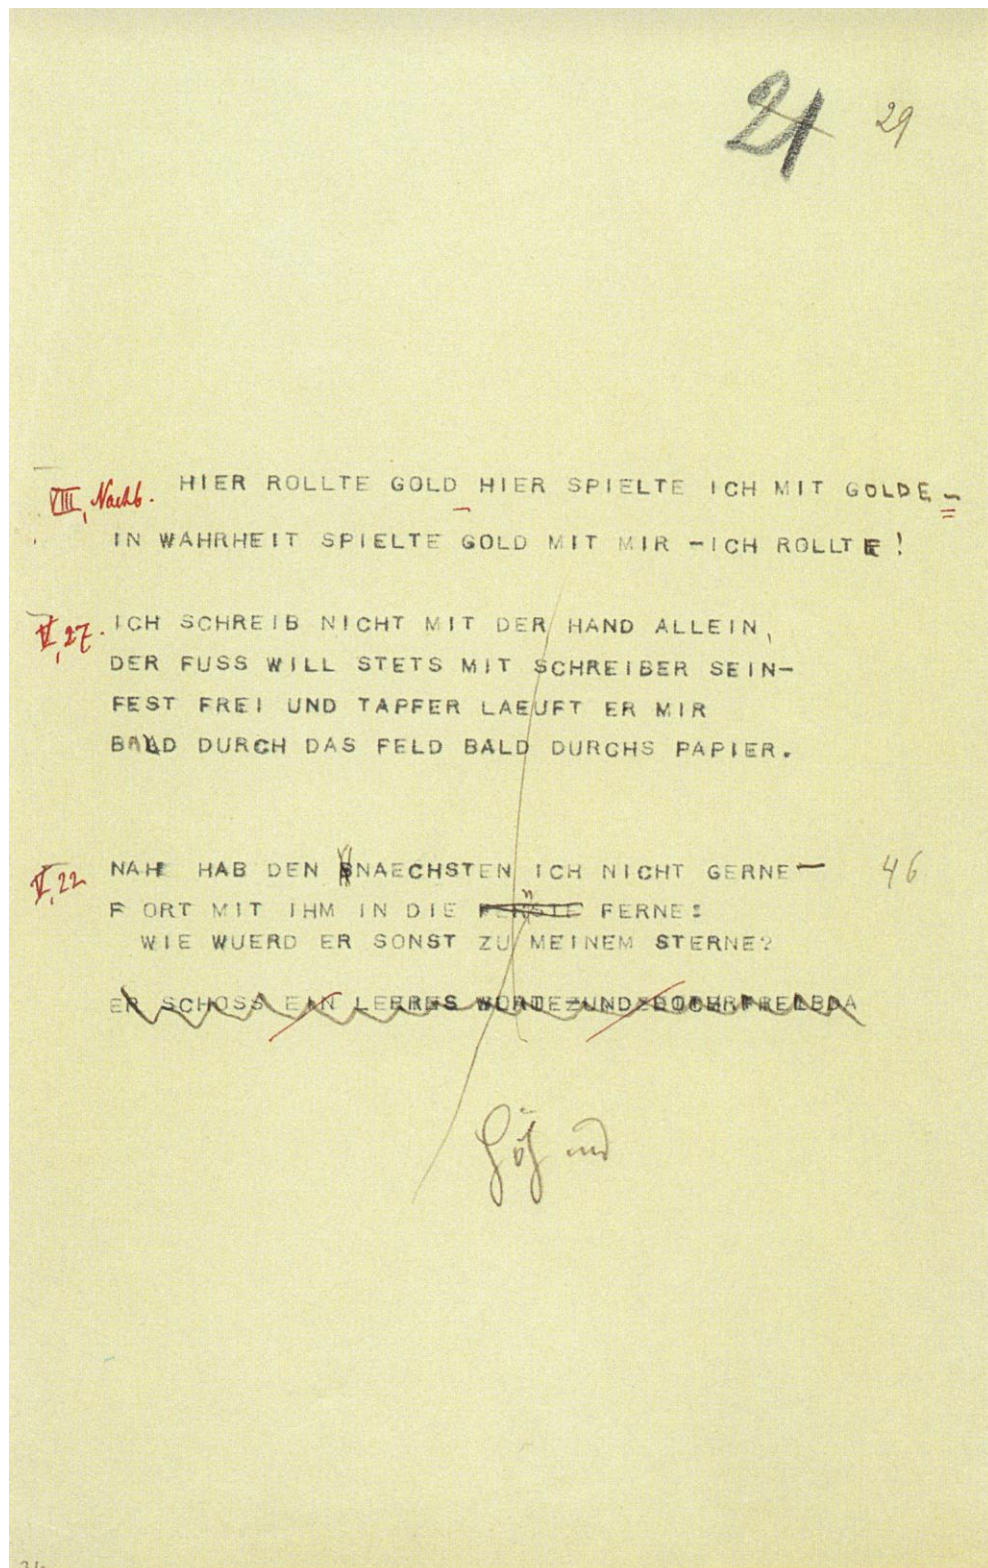 21 29
VIII, Nachb. HIER ROLLTE GOLD HIER SPIELTE ICH MIT GOLDE –
IN WAHRHEIT SPIELTE GOLD MIT MIR -ICH ROLLTE !
V, 27. ICH SCHREIB NICHT MIT DER HAND ALLEIN,
DER FUSS WILL STETS MIT SCHREIBER SEIN-
FEST FREI UND TAPFER LAEUFT ER MIR
BALD DURCH DAS FELD BALD DURCHS PAPIER.
V, 22 NAH HAB DEN NAECHSTEN ICH NICHT GERNE— 46
F ORT MIT IHM IN DIE FERNE:
WIE WUERD ER SONST ZU MEINEM STERNE?
ER SCHOSS EIN LEERES WORTE
und